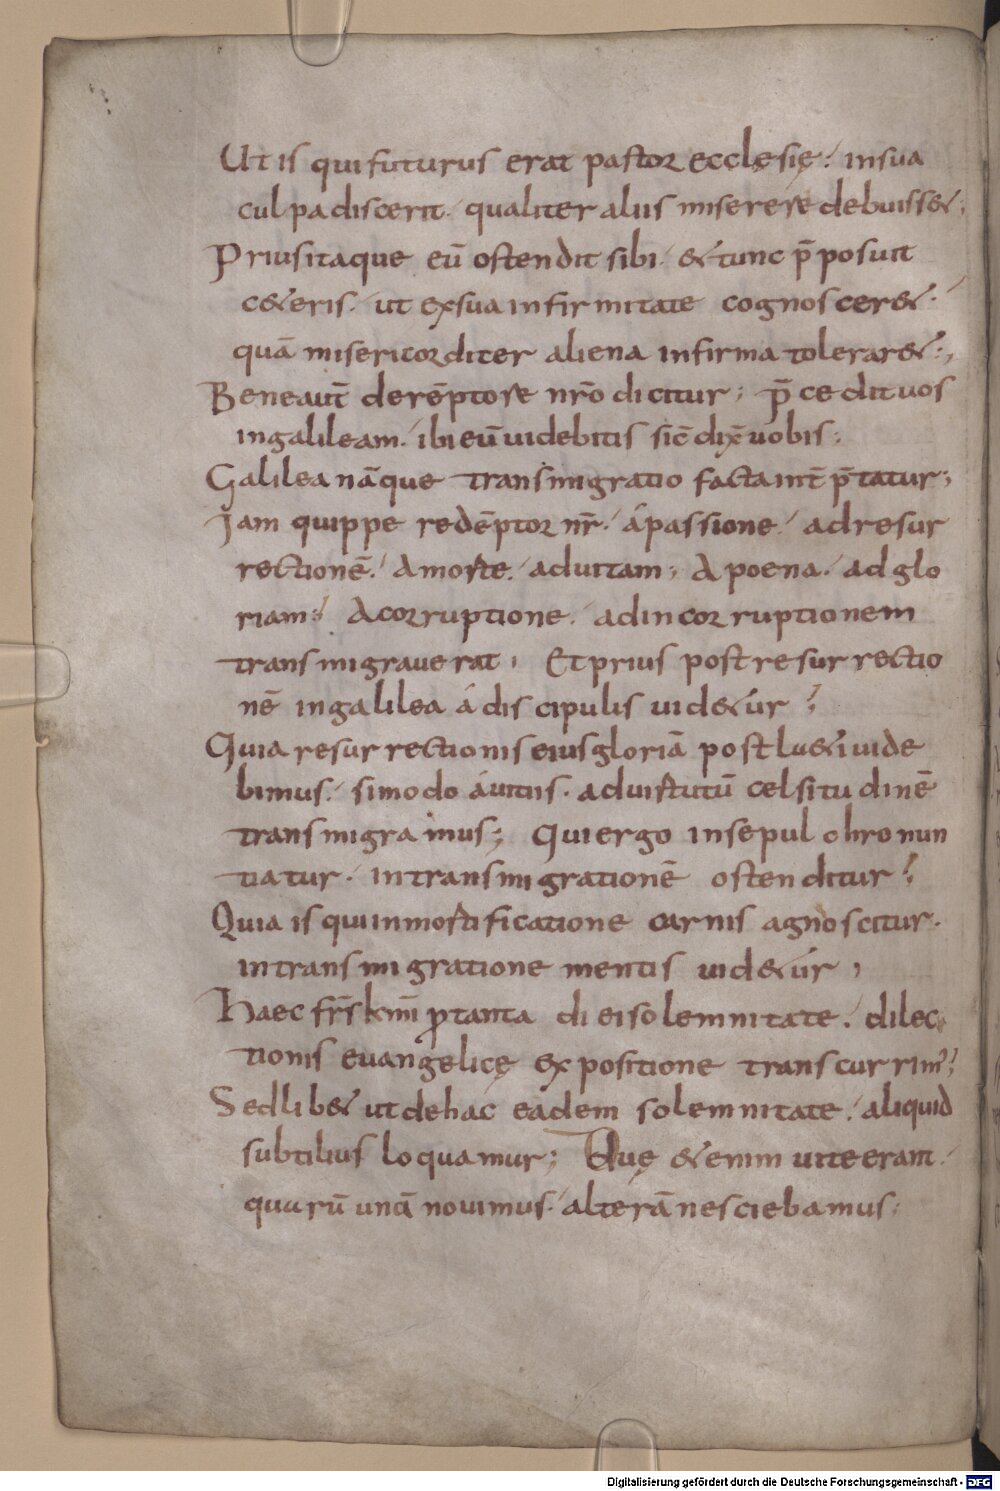 Ut is qui futurus erat pastor ecclęsię. in sua
culpa discerit. qualiter aliis miserere debuiss&;
Prius itaque eū ostendit sibi. & tunc p̄posuit
c&eris. ut ex sua infirmitate cognoscer&.
quā misericorditer aliena infirma tolerar&;
Bene aut̄ de rēptore nr̄o dicitur; p̄cedit uos
in galileam. ibi eū uidebitis sic̄ dix̄ uobis;
Galilea nāque transmigratio facta int̄p̄tatur;
Jam quippe redēptor nr̄. á passione. ad resur
rectionē. A morte. ad uitam; A poena. ad glo
riam; A corruptione. ad incorruptionem
transmigrauerat; Et prius post resurrectio
nē in galilea á discipulis uid&ur?
Quia resurrectionis eius gloriā post lu&i uide
bimus. si modo á uitiis. ad uirtutū celsitudinē
transmigramus; Qui ergo in sepulchro nun
tiatur. in transmigrationē ostenditur?
Quia is qui in mortificatione carnis agnoscitur.
in transmigratione mentis uid&ur;
Haec fr̄s km̄i p̄ tanta diei solemnitate. dilec
tionis euangelicę expositione transcurrim̄;
Sed lib& ut de hac eadem solemnitate. aliquid
subtilius loquamur; Duę &enim uite erant.
quarū unā nouimus. alterā nesciebamus;
Digitalisierung gefördert durch die Deutsche Forschungsgemeinschaft - DFG